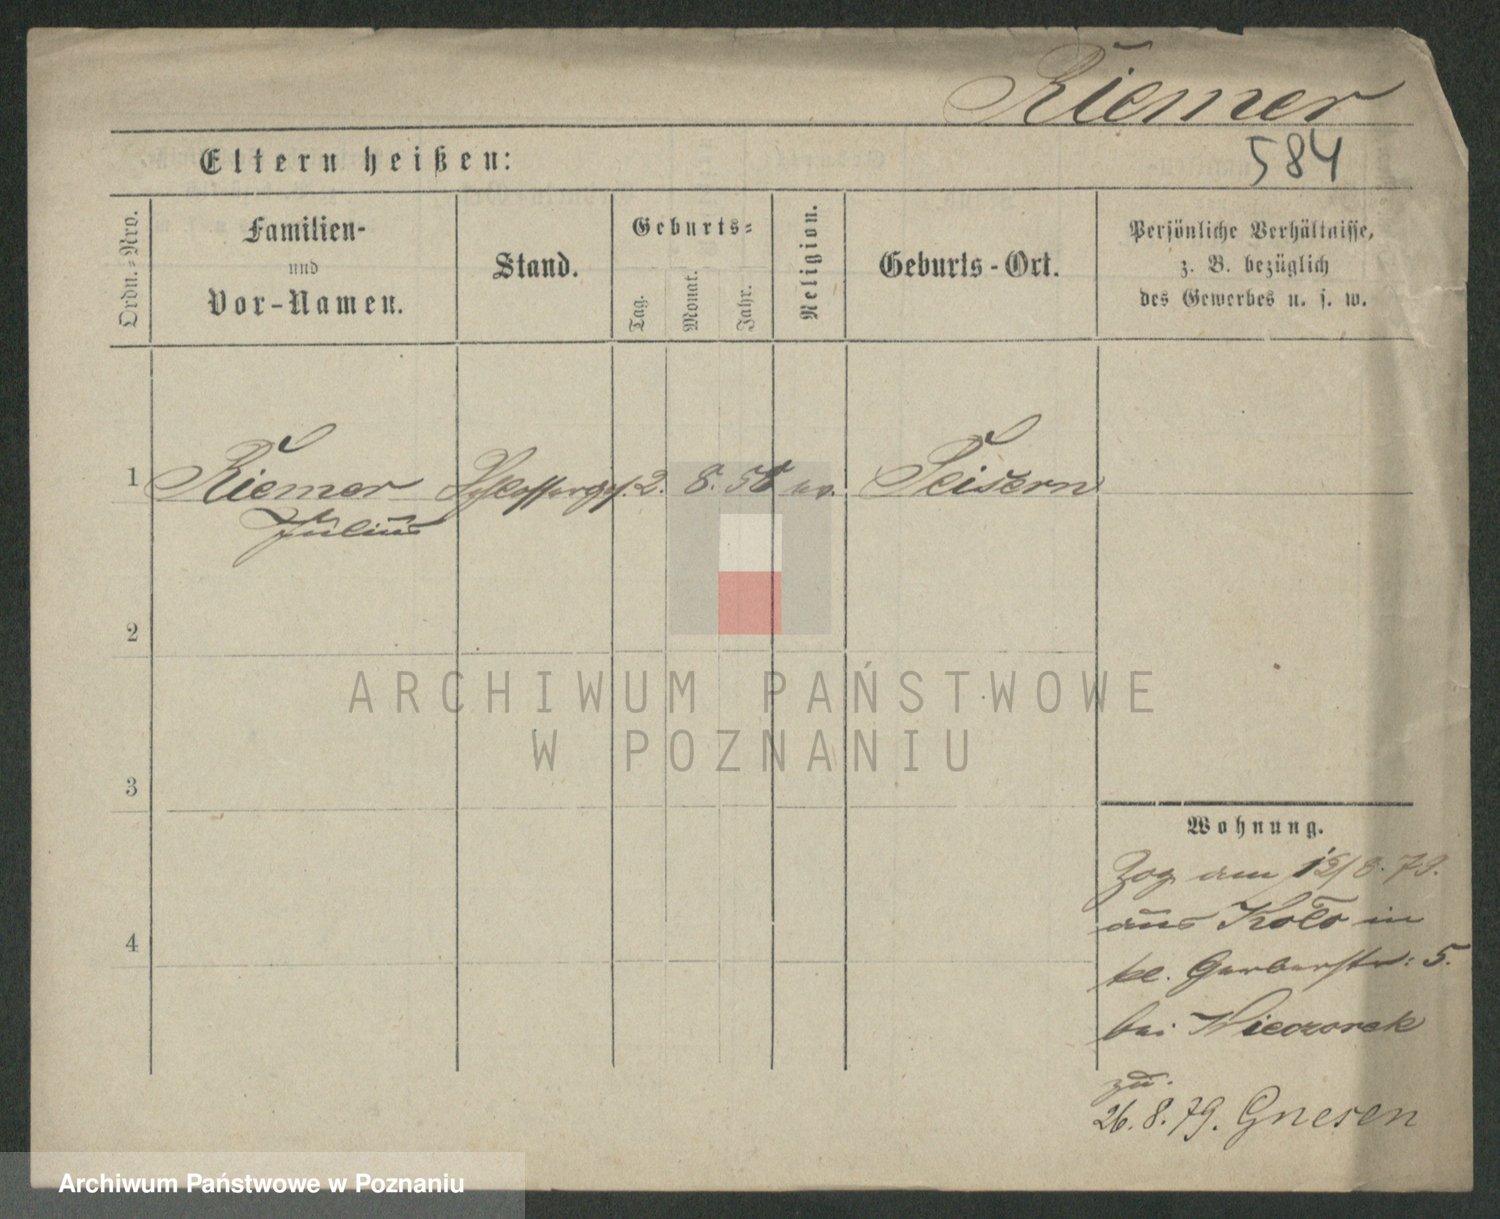 Riemer
584
Eltern heißen:
Ordn.-Nro.
Familien-
und
Vor-Namen.
Stand.
Geburts-
Tag.
Monat.
Jahr.
Religion.
Geburts-Ort.
Persönliche Verhältnisse,
z. B. bezüglich
des Gewerbes u. s. w.
1
Riemer
Julius
Schlosserges. 2. 8. 58 ev.
Peisern
2
3
4
ARCHIWUM PAŃSTWOWE
W POZNANIU
Wohnung.
Zog am 15/8.79.
aus Koło in
kl. Gerberstr: 5.
bei Wieczorek
zu.
26.8.79. Gnesen
Archiwum Państwowe w Poznaniu